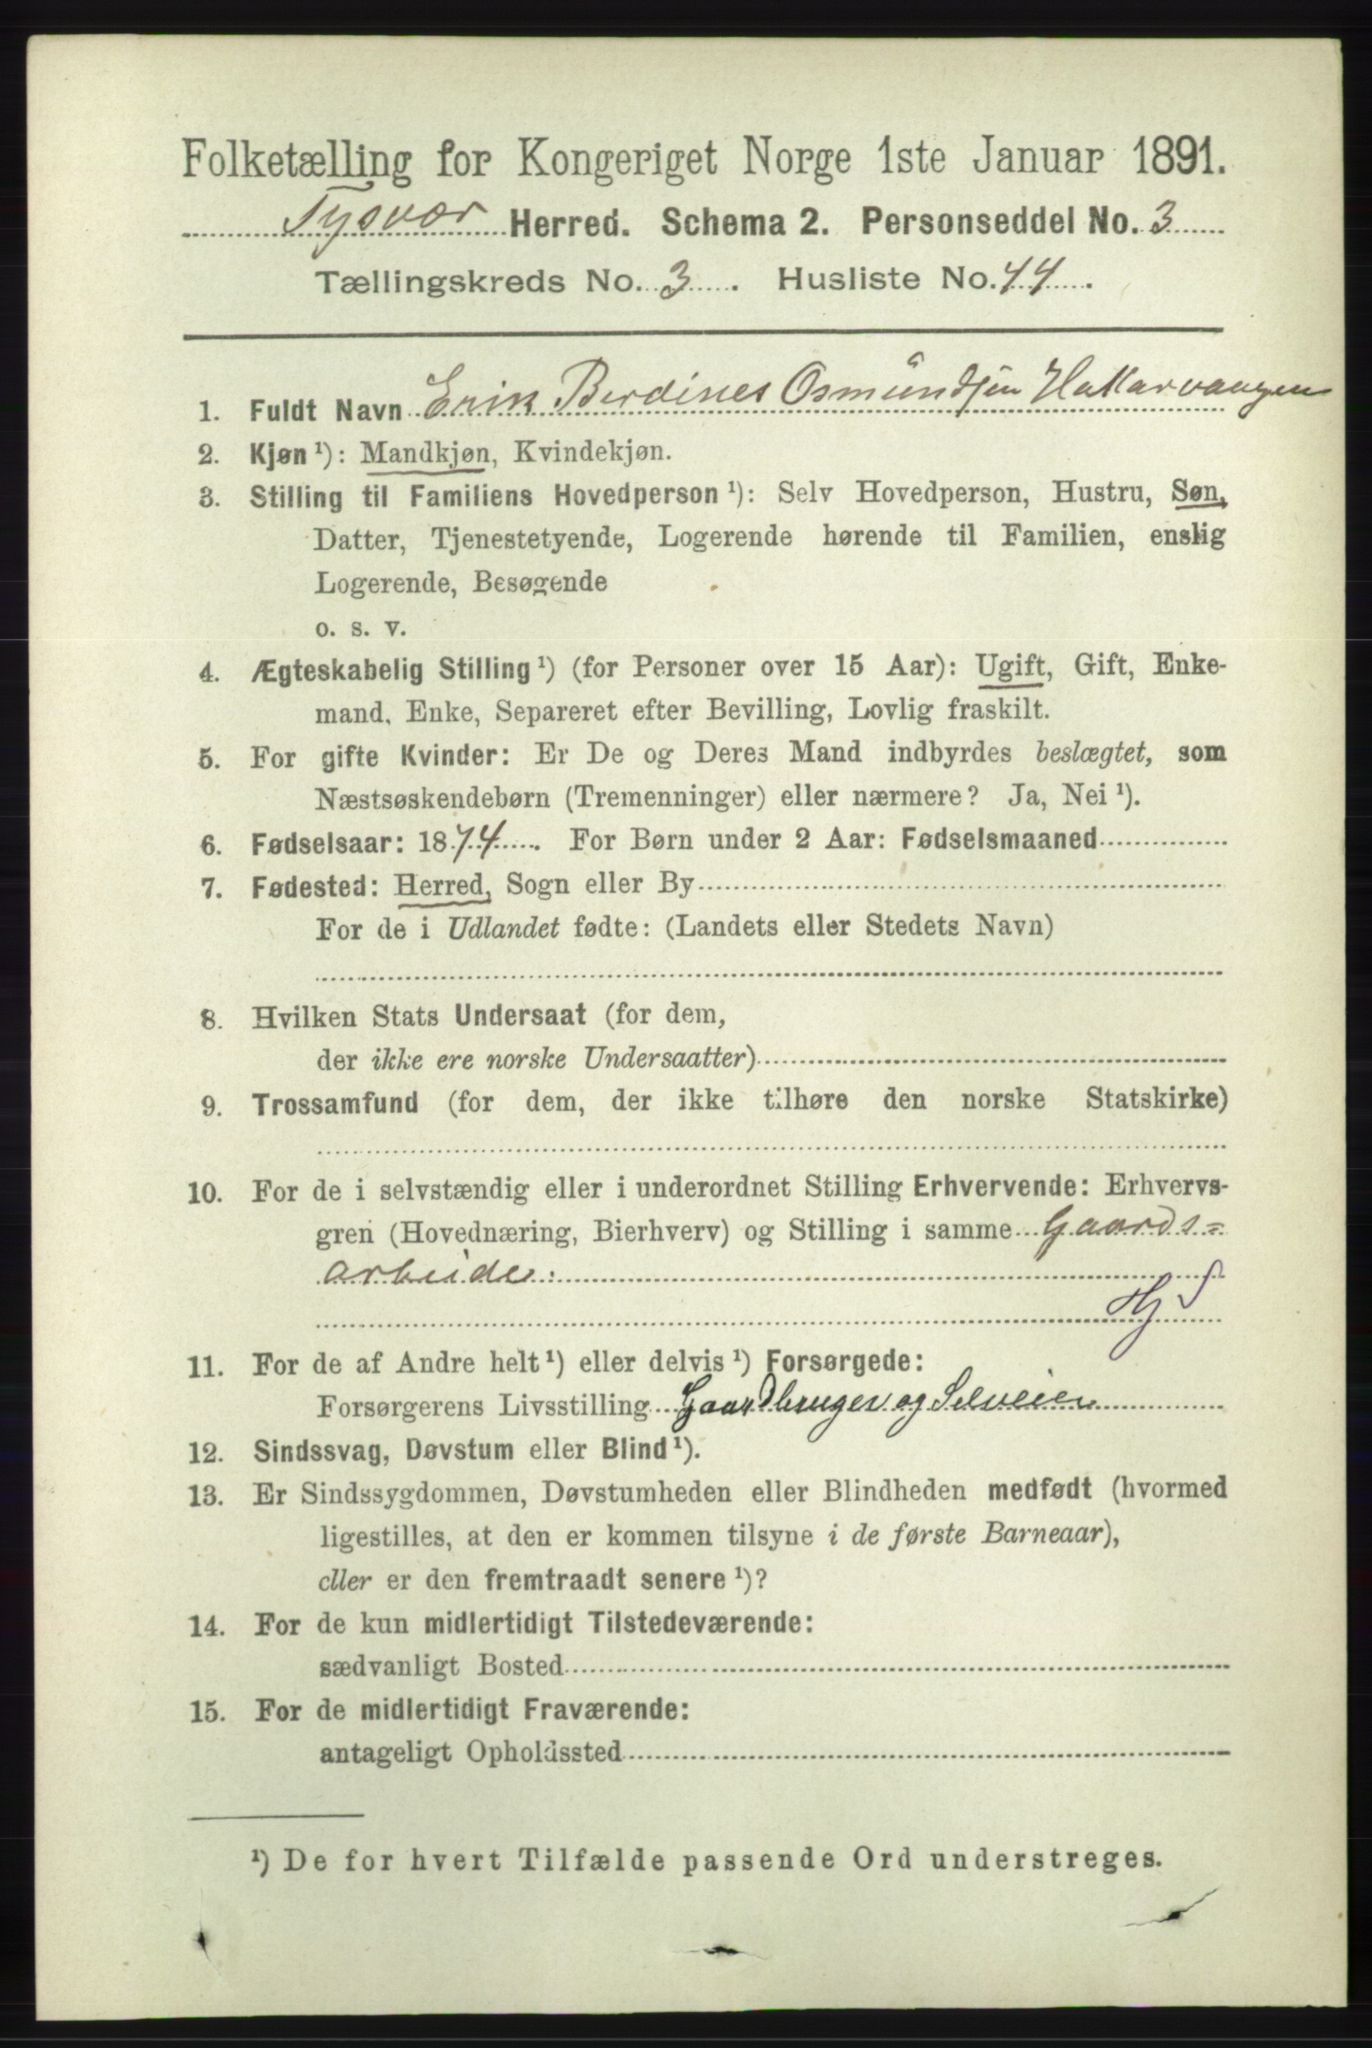 Folketælling for Kongeriget Norge 1ste Januar 1891.
Tysvær Herred. Schema 2. Personseddel No. 3
Tællingskreds No. 3. Husliste No. 44.
1. Fuldt Navn Erik Berdines Osmundsen Hakkarvaagen
2. Kjøn ¹): Mandkjøn, Kvindekjøn.
3. Stilling til Familiens Hovedperson ¹): Selv Hovedperson, Hustru, Søn,
Datter, Tjenestetyende, Logerende hørende til Familien, enslig
Logerende, Besøgende
o. s. v.
4. Ægteskabelig Stilling ¹) (for Personer over 15 Aar): Ugift, Gift, Enke-
mand, Enke, Separeret efter Bevilling, Lovlig fraskilt.
5. For gifte Kvinder: Er De og Deres Mand indbyrdes beslægtet, som
Næstsøskendebørn (Tremenninger) eller nærmere? Ja, Nei ¹).
6. Fødselsaar: 1874. For Børn under 2 Aar: Fødselsmaaned
7. Fødested: Herred, Sogn eller By
For de i Udlandet fødte: (Landets eller Stedets Navn)
8. Hvilken Stats Undersaat (for dem,
der ikke ere norske Undersaatter)
9. Trossamfund (for dem, der ikke tilhøre den norske Statskirke)
10. For de i selvstændig eller i underordnet Stilling Erhvervende: Erhvervs-
gren (Hovednæring, Bierhverv) og Stilling i samme Gaards=
arbeide.
Hj S
11. For de af Andre helt ¹) eller delvis ¹) Forsørgede:
Forsørgerens Livsstilling Gaardbruger og Selveier
12. Sindssvag, Døvstum eller Blind ¹).
13. Er Sindssygdommen, Døvstumheden eller Blindheden medfødt (hvormed
ligestilles, at den er kommen tilsyne i de første Barneaar),
eller er den fremtraadt senere ¹)?
14. For de kun midlertidigt Tilstedeværende:
sædvanligt Bosted
15. For de midlertidigt Fraværende:
antageligt Opholdssted
¹) De for hvert Tilfælde passende Ord understreges.